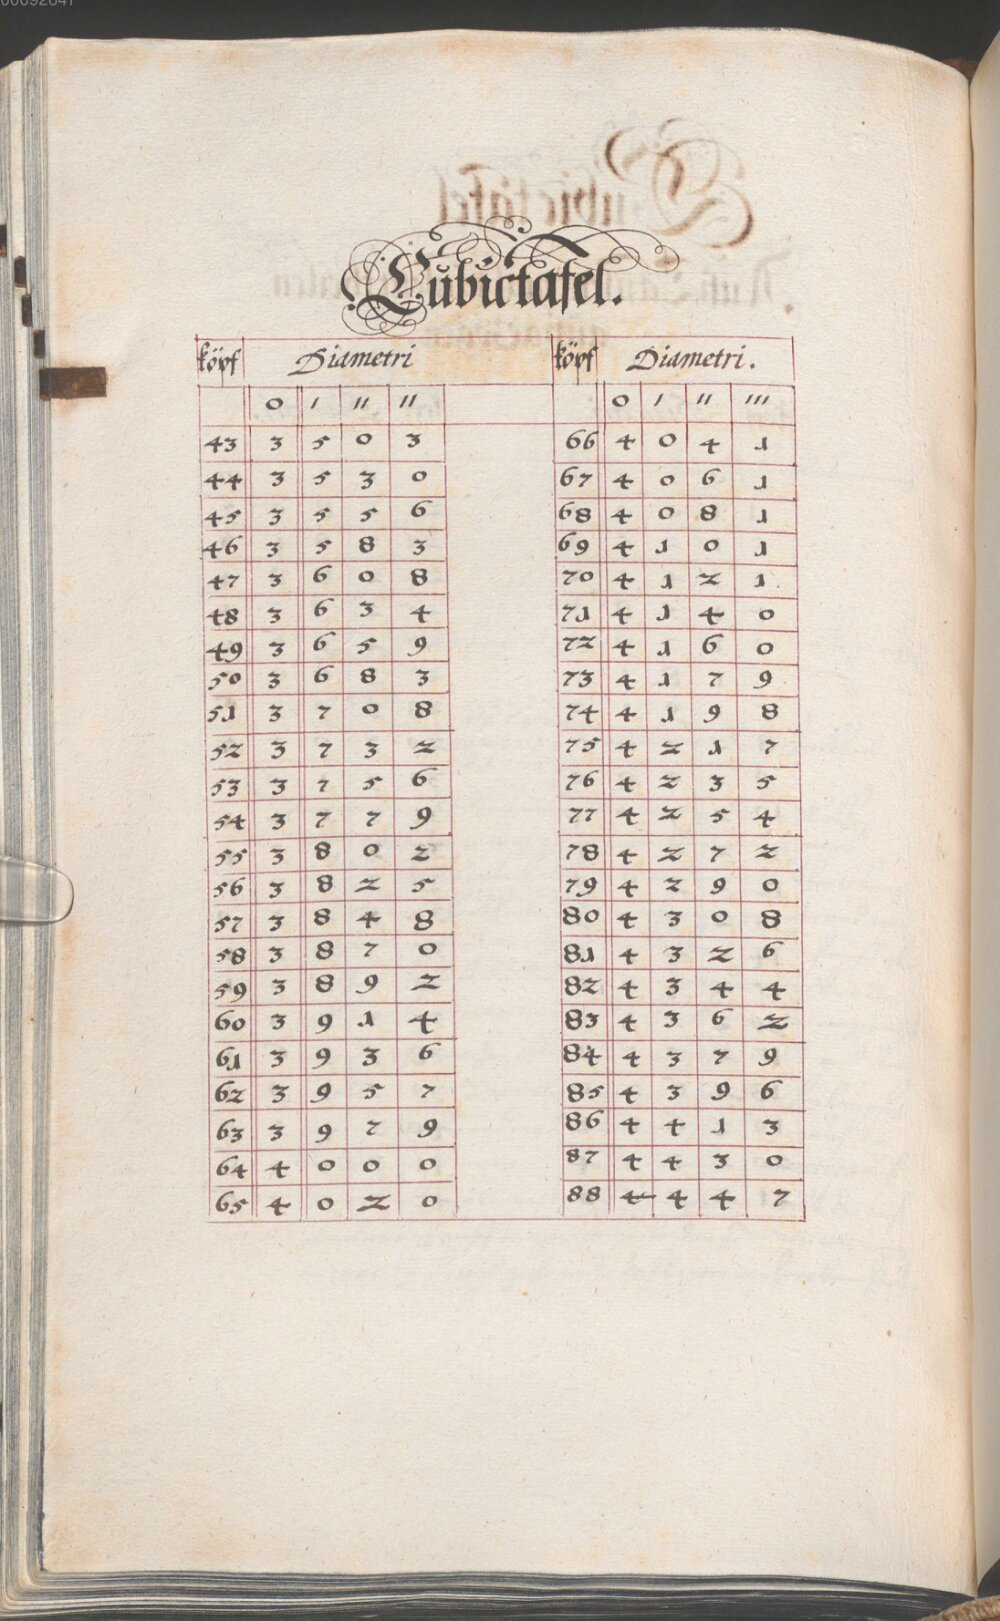 Cubictafel.
köpf Diametri
0 I II II
43 3 5 0 3
44 3 5 3 0
45 3 5 5 6
46 3 5 8 3
47 3 6 0 8
48 3 6 3 4
49 3 6 5 9
50 3 6 8 3
51 3 7 0 8
52 3 7 3 2
53 3 7 5 6
54 3 7 7 9
55 3 8 0 2
56 3 8 2 5
57 3 8 4 8
58 3 8 7 0
59 3 8 9 2
60 3 9 1 4
61 3 9 3 6
62 3 9 5 7
63 3 9 7 9
64 4 0 0 0
65 4 0 2 0
köpf Diametri.
0 I II III
66 4 0 4 1
67 4 0 6 1
68 4 0 8 1
69 4 1 0 1
70 4 1 2 1
71 4 1 4 0
72 4 1 6 0
73 4 1 7 9
74 4 1 9 8
75 4 2 1 7
76 4 2 3 5
77 4 2 5 4
78 4 2 7 2
79 4 2 9 0
80 4 3 0 8
81 4 3 2 6
82 4 3 4 4
83 4 3 6 2
84 4 3 7 9
85 4 3 9 6
86 4 4 1 3
87 4 4 3 0
88 4 4 4 7